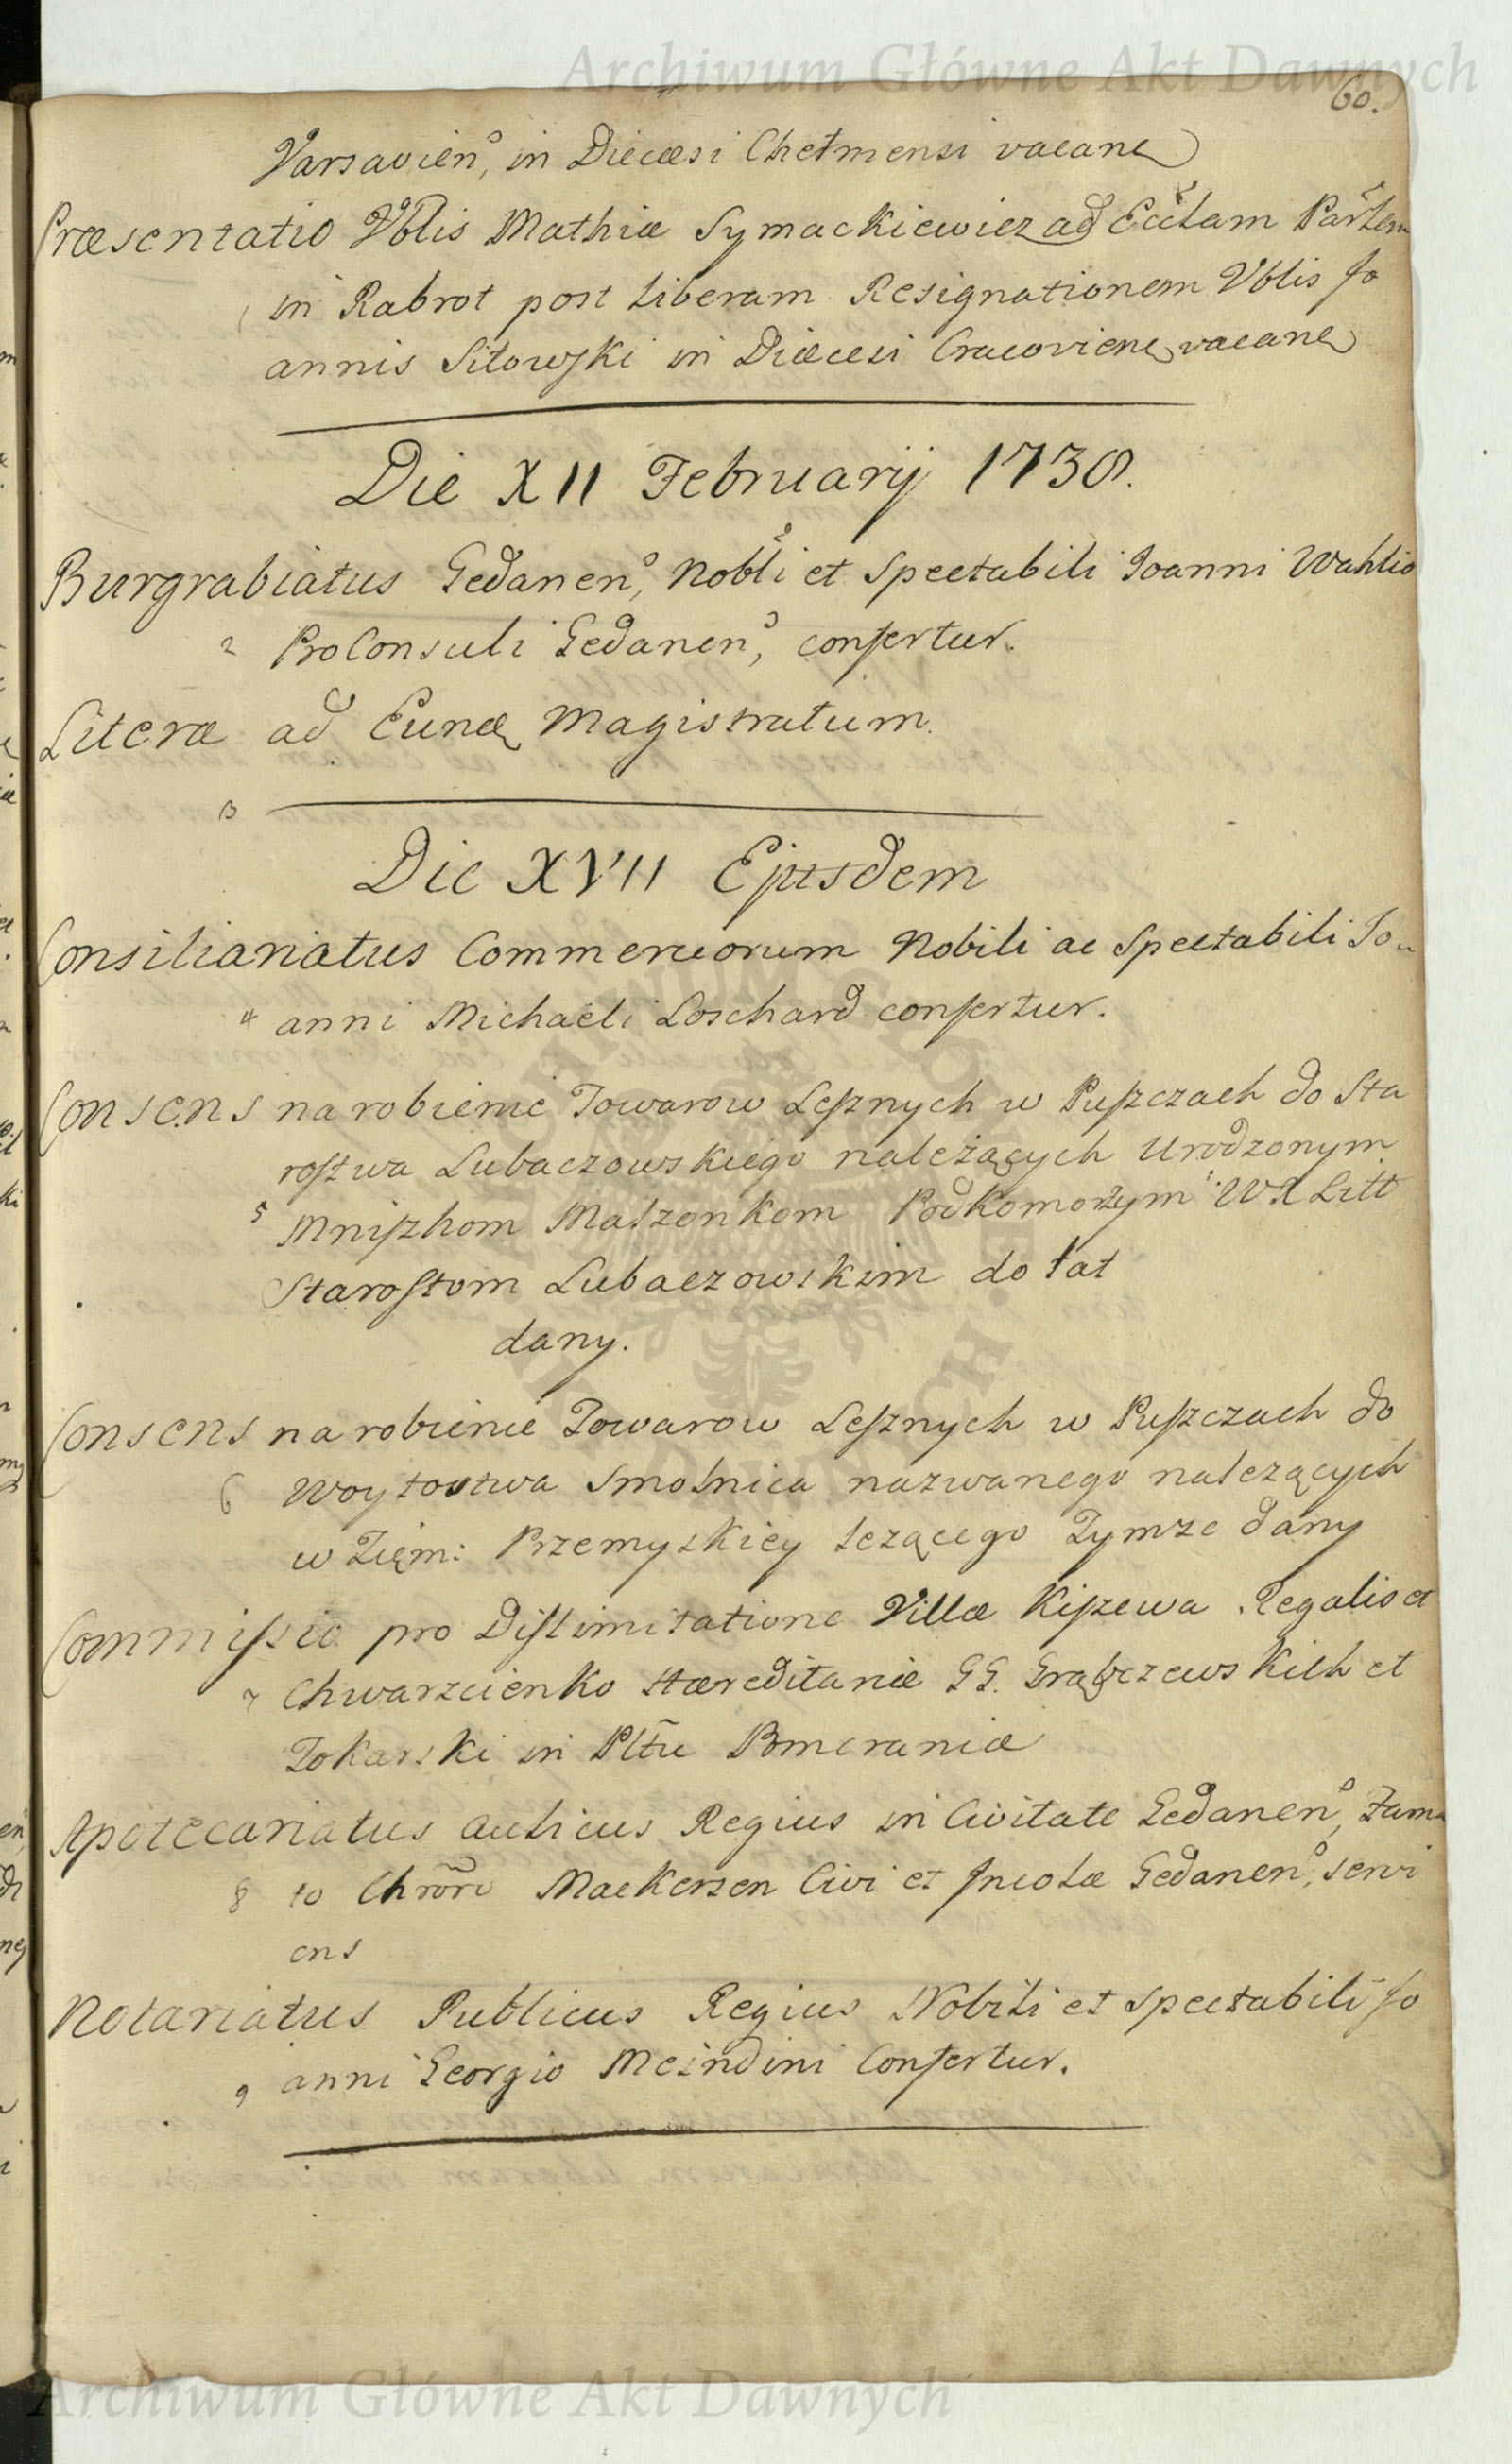 Archiwum Główne Akt Dawnych
60.
Varsavien, in Diecesi Chełmensi vacan
Præsentatio Vblis Mathiæ Symackiewicz ad Eccłam Parlem
1 in Rabrot post liberam Resignationem Vblis Jo
annis Sitowski in Diæcesi Cracovien vacan
Die XII February 1730.
Burgrabiatus Gedanen, Nobli et Spectabili Ioanni Wahlio
2 ProConsuli Gedanen, confertur.
Literæ ad Eund Magistratum.
3
Die XVII Ejusdem
Consiliariatus Commerciorum Nobili ac Spectabili Jo
4 anni Michaeli Loschard confertur.
Consens na robienie Towarow Leśznych w Puszczach do Sta
rostwa Lubaczowskiego należących Urodzonym
5 Mniszhom Małzonkom Podkomorzym WX Litt
Starostom Lubaczowskim do łat
dany.
Consens na robienie Towarow Leśznych w Puszczach do
6 Woytostwa Smolnica nazwanego nalezących
w Ziem: Przemyskiey lezącego Tymze dany
Commissio pro Dislimitatione Villæ Kiszewa Regalis et
7 Chwarzcienko Hæreditariæ GG. Grąbczewskich et
Tokarski in Pltu Pomeraniæ
Apotecariatus Aulicus Regius in Civitate Gedanen, Fama
8 to Chroro Mackensen Civi et Incolæ Gedanen, servi
ens
Notariatus Publicus Regius Nobili et Spectabili Jo
9 anni Georgio Meindini Confertur.
Archiwum Główne Akt Dawnych